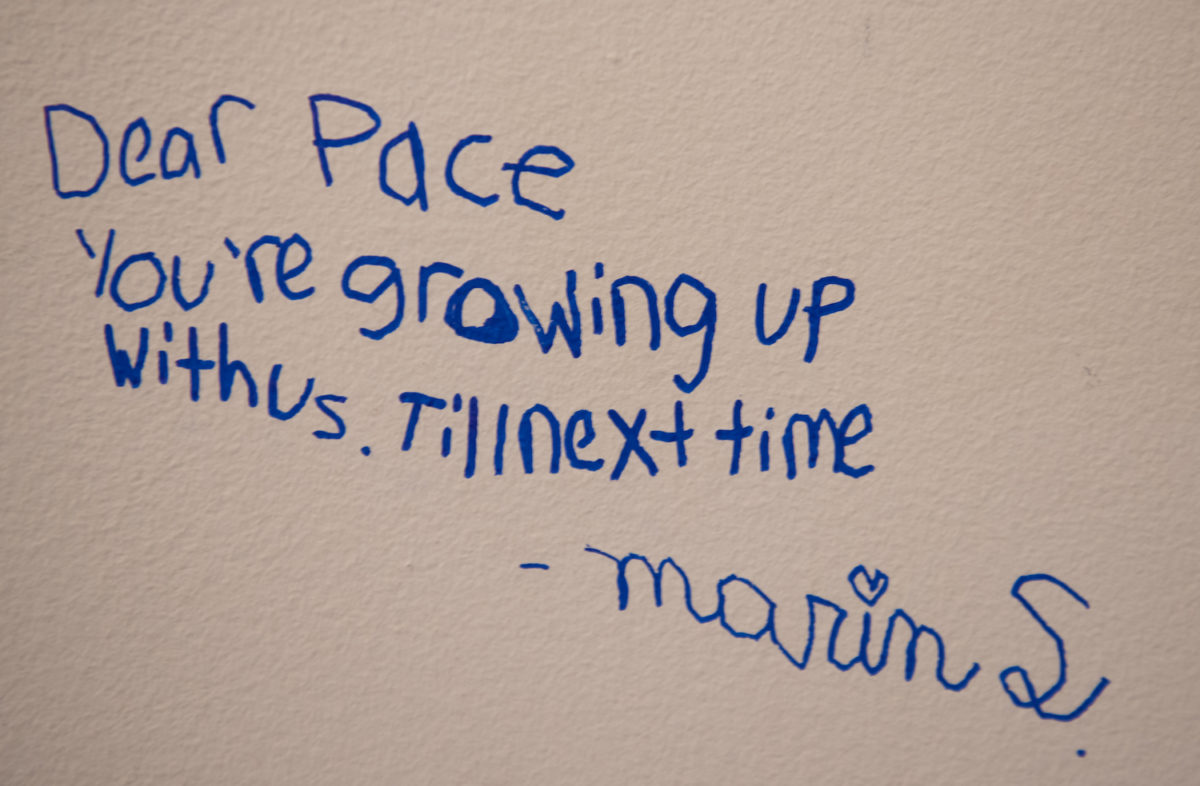 Dear Pace
You're growing up
With us. Till next time
- marin S.